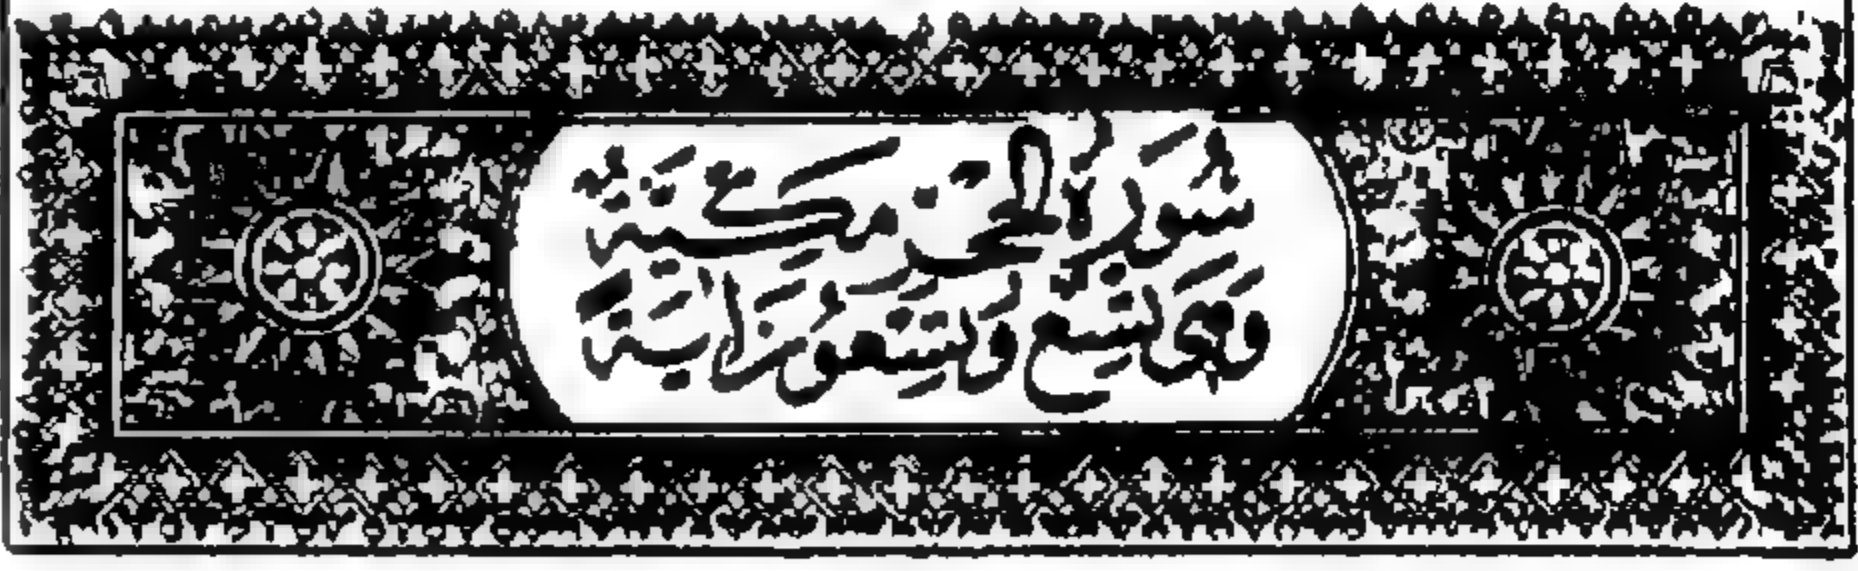 سُورَةُ الْحِجْرِ مَكِّيَّةٌ
وَهِىَ تِسْعٌ وَتِسْعُونَ اٰيَةً